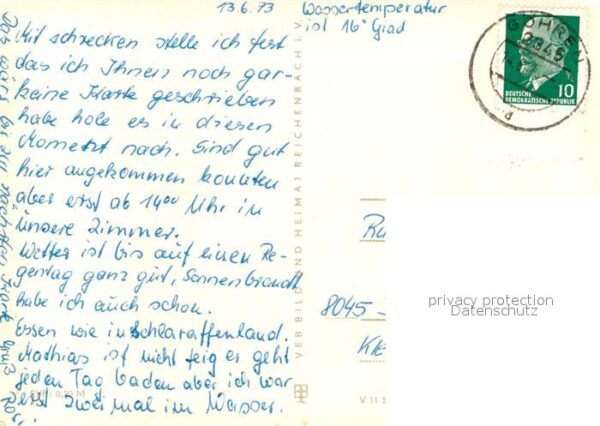 13.6.73
Wassertemperatur
ist 16° Grad
Mit schrecken stelle ich fest
das ich Ihnen noch gar-
keine Karte geschrieben
habe hole es in diesen
Moment nach. Sind gut
hier angekommen konnten
aber erst ab 14⁰⁰ Uhr in
unsere Zimmer.
Wetter ist bis auf einen Re-
gentag ganz gut, Sonnenbrandt
habe ich auch schon.
Essen wie in Schlaraffenland.
Mathias ist nicht feig er geht
jeden Tag baden aber ich war
erst zwei mal im Wasser.
Das wars bis zur nächsten Karte Gruß
VEB BILD UND HEIMAT REICHENBACH I. V.
GÖHREN
2345
d
10
DEUTSCHE
DEMOKRATISCHE REPUBLIK
8045
privacy protection
Datenschutz
V 11 5